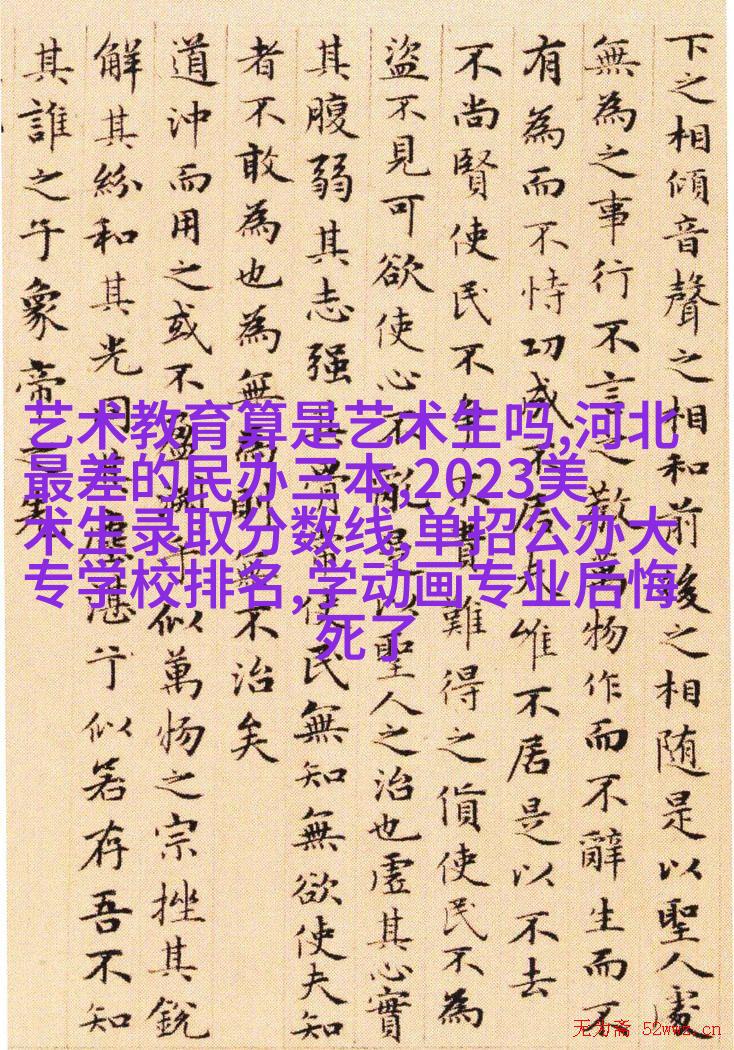 下之相傾音聲之相和前後之相随是以聖人處
無為之事行不言之教萬物作而不辭生而不
有為而不恃功成不居夫唯不居是以不去
不尚賢使民不争不貴難得之貨使民不為
盜不見可欲使心不亂是以聖人之治也虛其心實
其腹弱其志强其骨常使民無知無欲使夫知
者不敢為也為無為則無不治矣
道沖而用之或不盈淵乎似萬物之宗挫其銳
解其紛和其光同其塵湛乎似若存吾不知
其誰之子象帝之先
艺术教育算是艺术生吗,河北
最差的民办三本,2023美
术生录取分数线,单招公办大
专学校排名,学动画专业后悔
死了
无为斋 52wwz.cn